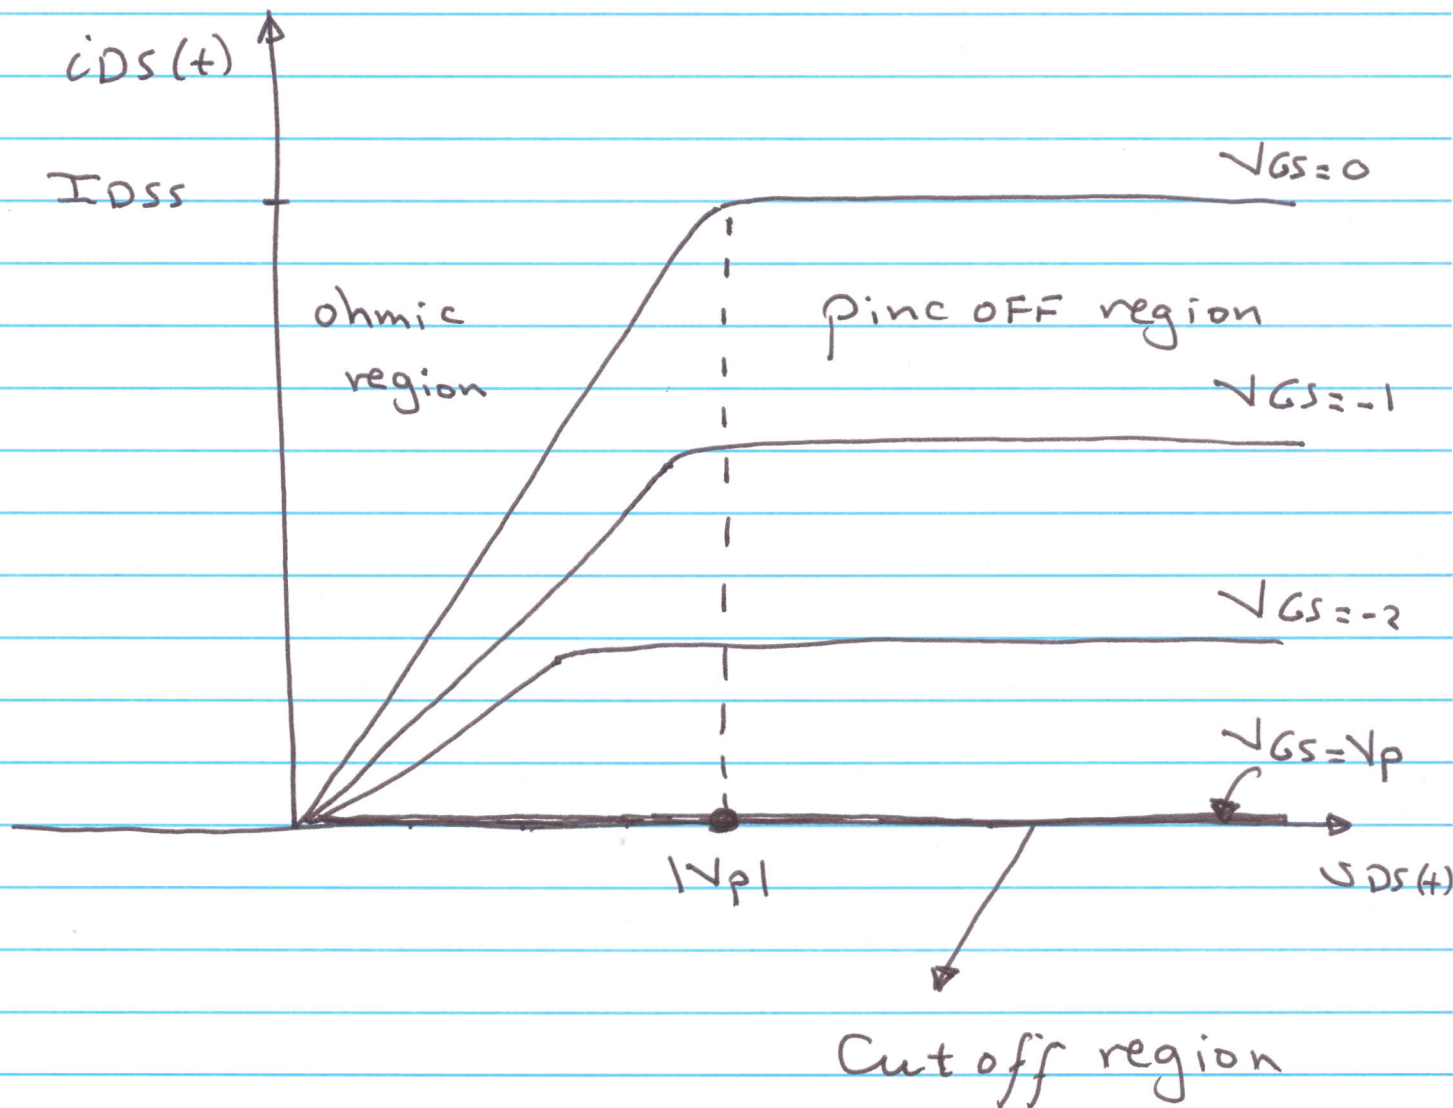 iDS(t)
IDSS
VGS=0
ohmic
region
pinc OFF region
VGS=-1
VGS=-2
VGS=Vp
|Vp|
vDS(t)
Cutoff region